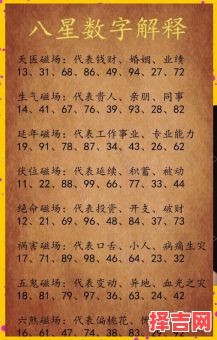 八星数字解释
天医磁场：代表钱财、婚姻、业绩
13、31、68、86、49、94、27、72
生气磁场：代表贵人、亲朋、同事
14、41、67、76、39、93、28、82
延年磁场：代表工作事业、专业能力
19、91、78、87、34、43、26、62
伏位磁场：代表延续、积蓄、被动
11、22、88、99、66、77、33、44
绝命磁场：代表投资、开支、破财
12、21、69、96、84、48、73、37
祸害磁场：代表口舌、小人、病痛生灾
17、71、89、98、46、64、23、32
五鬼磁场：代表变动、异地、血光之灾
18、81、79、97、36、63、24、42
六煞磁场：代表偏桃花、
16、61、47、74、38、83
择吉网